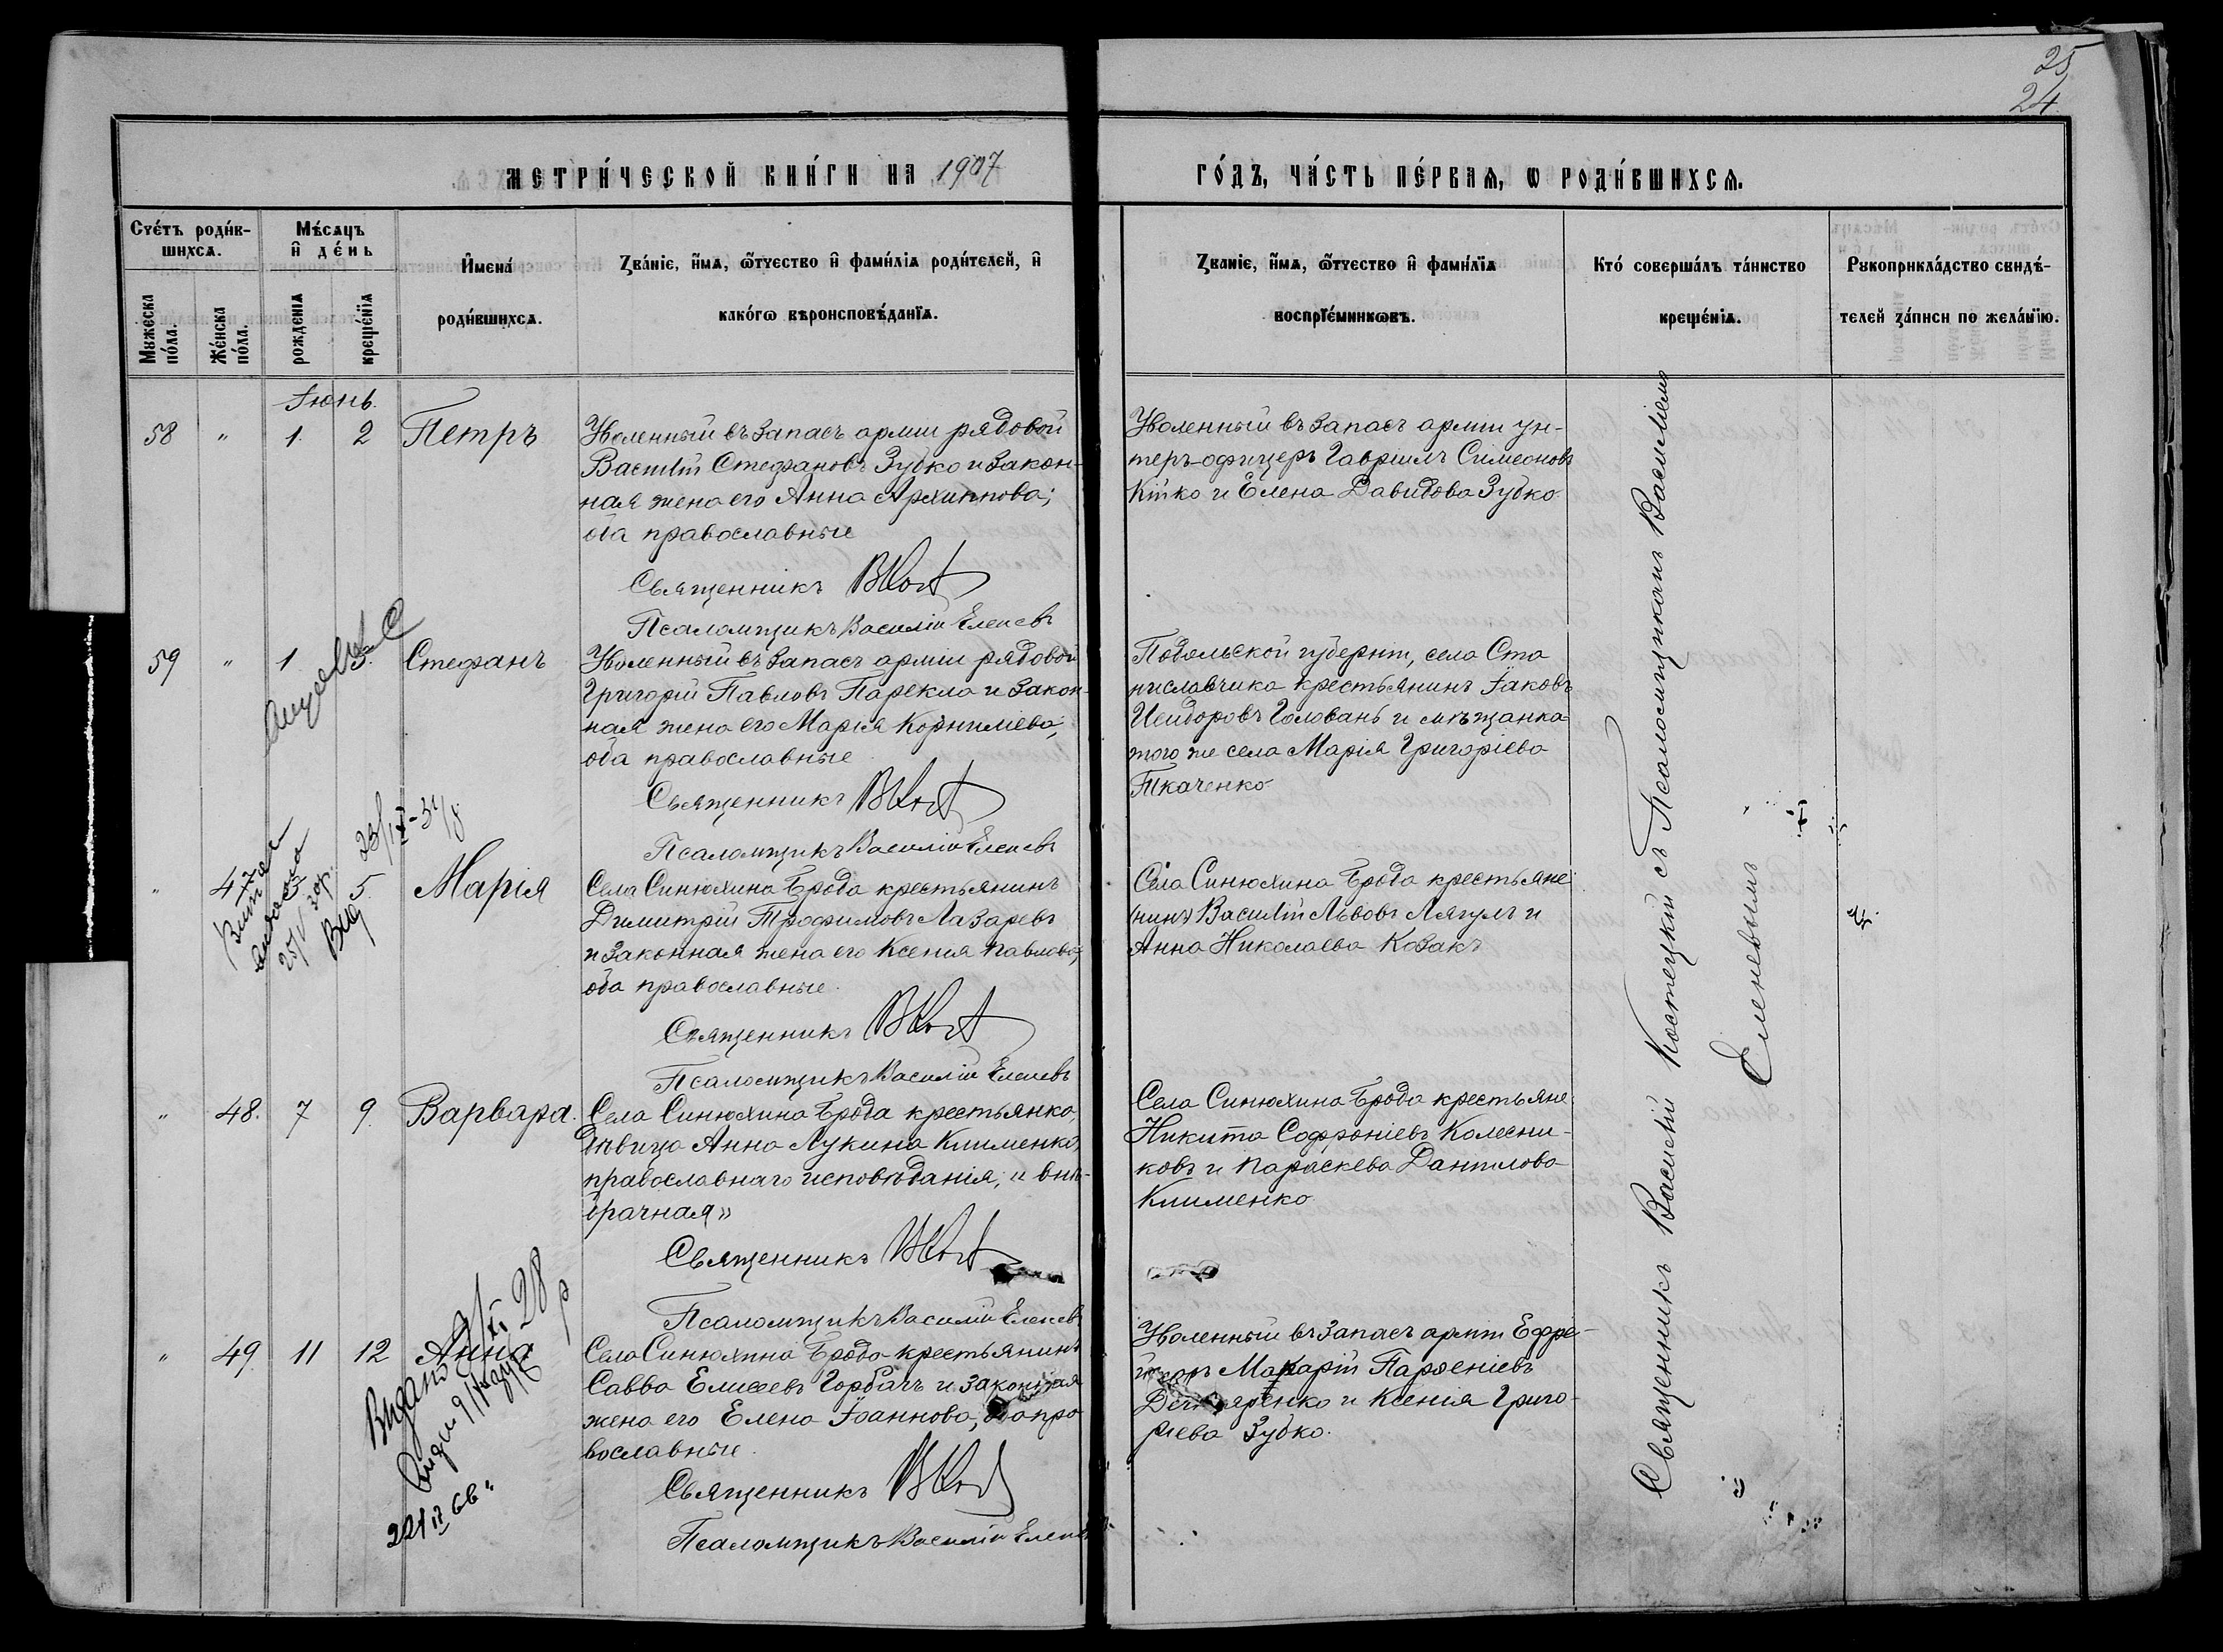 25
24
МЕТРИ́ЧЕСКОЙ КНИ́ГИ НА 1907
ГО́ДЪ, ЧА́СТЬ ПЕ́РВАѦ, Ѡ РОДИ́ВШИХСѦ.
Сче́тъ роди́в-
шихсѧ.
Мѣ́сѧцъ
и҆ де́нь
Мꙋжеска
по́ла.
Же́нска
по́ла.
рожденїѧ
креще́нїѧ
И҆мена́
роди́вшихсѧ.
Зва́нїе, и҆́мѧ, ѻ҆́тчество и҆ фами́лїѧ роди́телей, и҆
како́гѡ вѣроисповѣ́данїѧ.
Званїе, и҆́мѧ, ѻ҆́тчество и҆ фами́лїѧ
воспрїе́мникѡвъ.
Кто̀ соверша́лъ та́инство
креще́нїѧ.
Рꙋкоприкла́дство свидѣ́-
телей за́писи по жела́нїю.
Іюнь.
58 " 1. 2 Петръ
Уволенный въ запасъ арміи рядовой
Василій Стефановъ Зубко и закон-
ная жена его Анна Архиппова;
оба православные
Священникъ
Псаломщикъ Василій Еленевъ
Уволенный въ запасъ арміи ун-
теръ-офицеръ Гавріилъ Симеоновъ
Кійко и Елена Давидова Зубко
59 " 1 3. Стефанъ
Уволенный въ запасъ арміи рядовой
Григорій Павловъ Парекла и закон-
ная жена его Марія Корниліева,
оба православные
Священникъ
Псаломщикъ Василій Еленевъ
Подольской губерніи, села Ста
ниславчика крестьянинъ Іаковъ
Исидоровъ Головань и мѣщанка
того же села Марія Григоріева
Ткаченко
" 47 5. Марія
Села Синюхина Брода крестьянинъ
Димитрій Трофимовъ Лазаревъ
и законная жена его Ксенія Павлова,
оба православные.
Священникъ
Псаломщикъ Василій Еленевъ
Села Синюхина Брода крестьяне
(нинъ) Василій Львовъ Лягулъ и
Анна Николаева Козакъ
" 48. 7 9. Варвара.
Села Синюхина Брода крестьянка,
дѣвица Анна Лукина Клименко,
православнаго исповѣданія, "внѣ-
брачная"
Священникъ
Псаломщикъ Василій Еленевъ
Села Синюхина Брода крестьяне
Никита Софроніевъ Колесни-
ковъ и Параскева Даниилова
Клименко
" 49 11 12 Анна
Села Синюхина Брода крестьянинъ
Савва Елисеевъ Горбачъ и законная
жена его Елена Іоаннова, оба пра
вославные.
Священникъ
Псаломщикъ Василій Еленевъ
Уволенный въ запасъ арміи Ефре-
йторъ Макарій Парѳеніевъ
и Ксенія Григо-
ріева Зубко.
Священникъ Василій Костецкій съ Псаломщикомъ Василіемъ
Еленевымъ